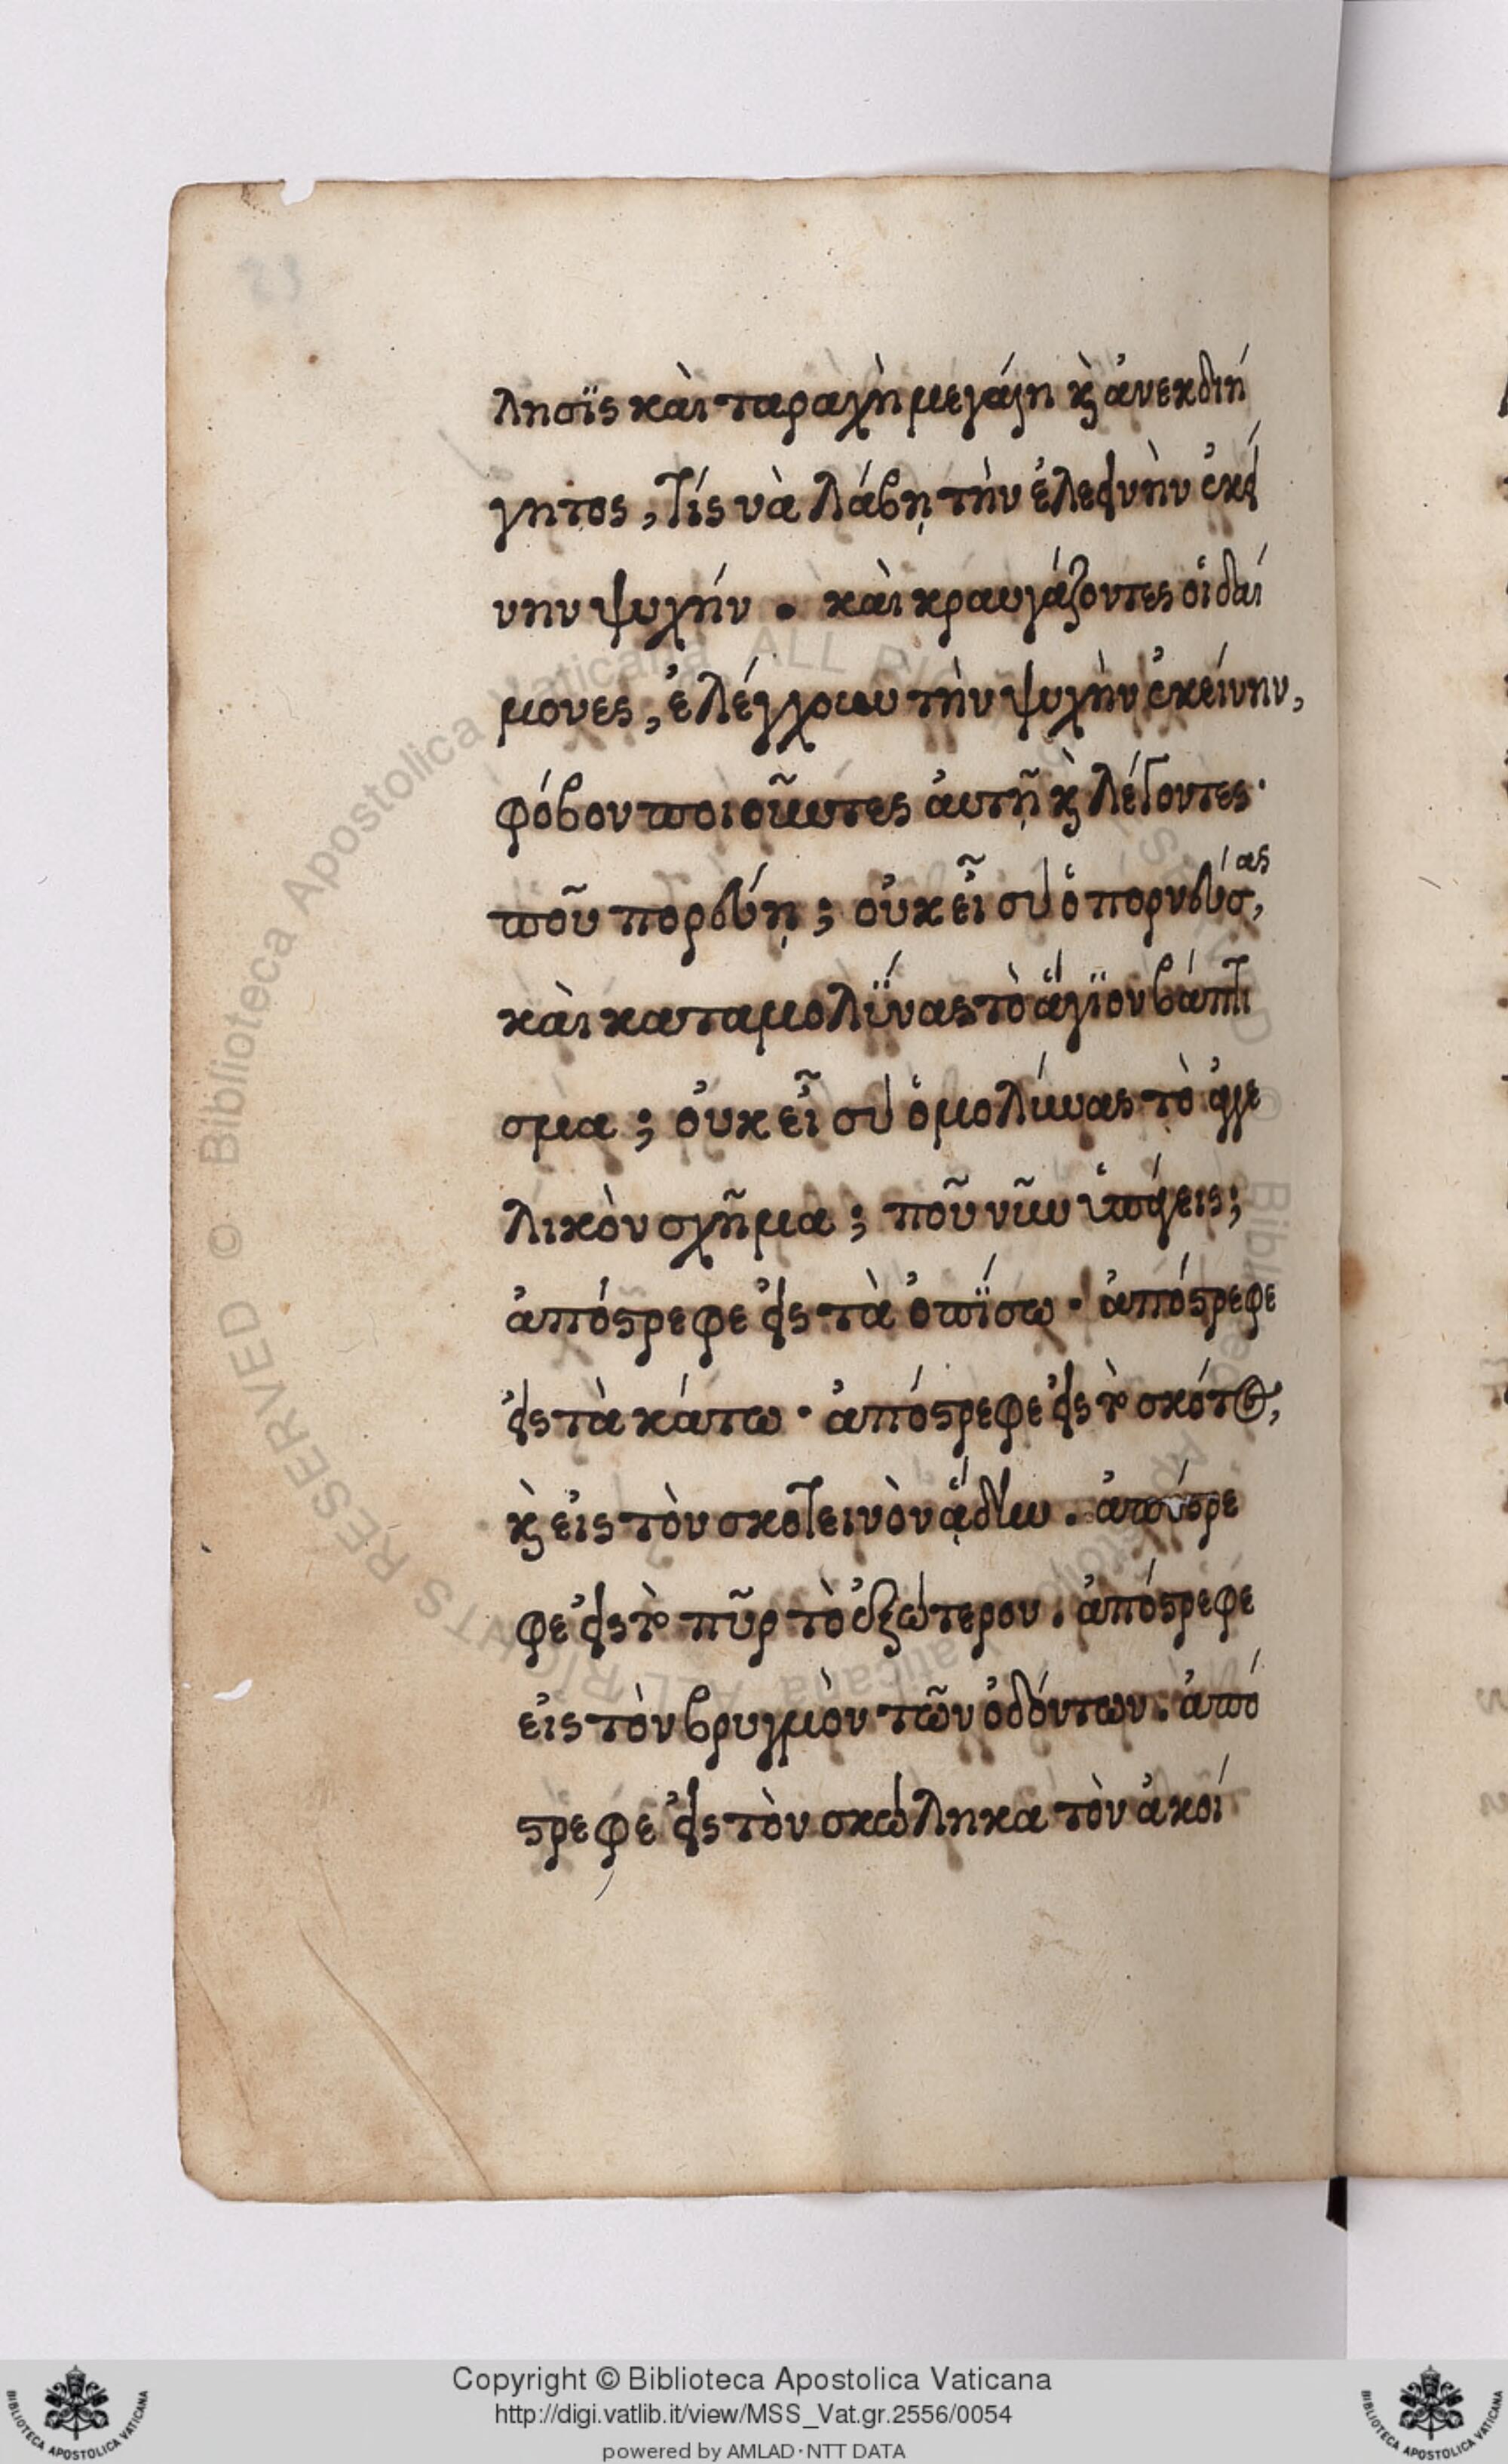 λησϊς καὶ ταραχὴ μεγάλη κ̀ ἀνεκδιή
γητος, τίς νὰ λάβῃ τὴν ἐλεεινὴν ἐκεί
νην ψυχήν . καὶ κραυγάζοντες οἱ δαί
μονες, ἐλέγχουν τὴν ψυχὴν ἐκείνην,
φόβον ποιοῦντες ἀυτῇ κ̀ λέγοντες·
ποῦ πορεύῃ ; οὐκ εἶ σὺ ὁ πορνεύσας,
καὶ καταμολΰνας τὸ ἅγϊον βάπτι
σμα ; οὐκ εἶ σὺ ὁ μολύνας τὸ ἀγγε
λικὸν σχῆμα ; ποῦ νῦν ὑπάγεις ;
ἀπόστρεφε εἰς τὰ ὀπΐσω · ἀπόστρεφε
εἰς τὰ κάτω · ἀπόστρεφε εἰς τὸ σκότος,
κ̀ εἰς τὸν σκοτεινὸν ᾅδην . ἀπόστρε
φε εἰς τὸ πῦρ τὸ ἐξώτερον . ἀπόστρεφε
εἰς τὸν βρυγμὸν τῶν ὀδόντων . ἀπό
στρεφε εἰς τὸν σκώληκα τὸν ἀκοί
Copyright © Biblioteca Apostolica Vaticana
http://digi.vatlib.it/view/MSS_Vat.gr.2556/0054
powered by AMLAD·NTT DATA